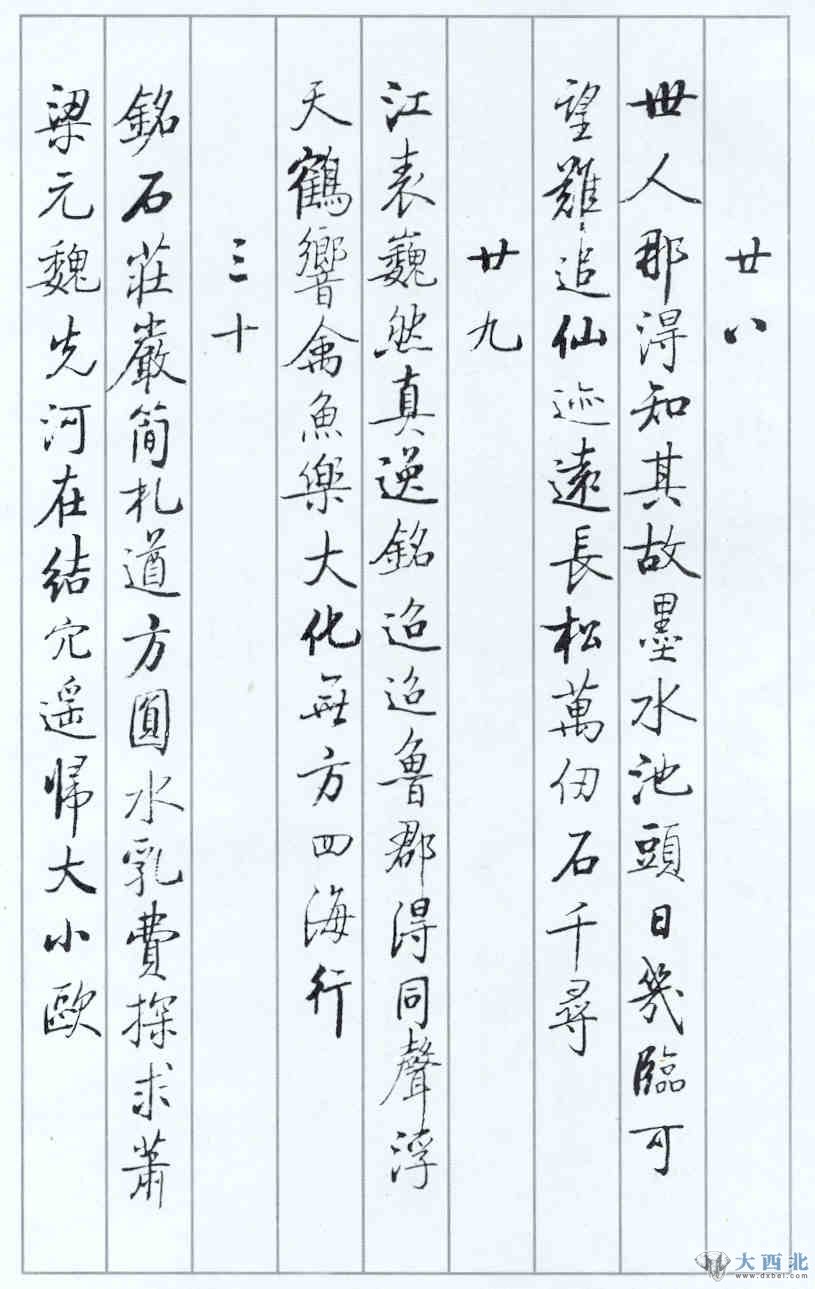 廿八
世人那得知其故墨水池頭日幾臨可
望難追仙迹遠長松萬仞石千尋
廿九
江表巍然真逸銘迢迢魯郡得同聲浮
天鶴響禽魚樂大化無方四海行
三十
銘石莊嚴簡札遒方圓水乳費探求蕭
梁元魏先河在結穴遥歸大小歐
大西北
www.dxbei.com